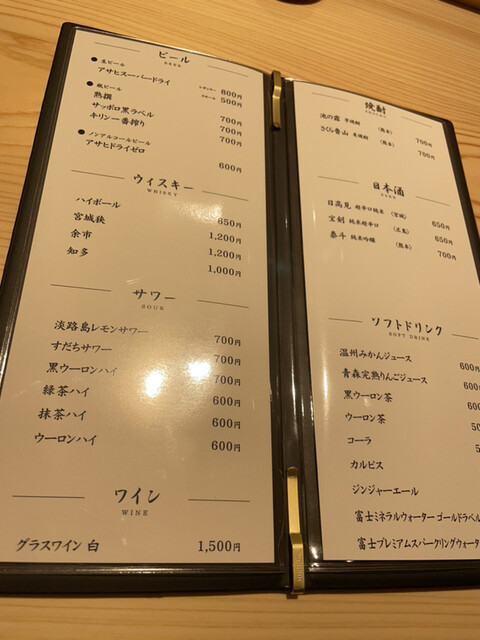 ビール
BEER
●生ビール
アサヒスーパードライ レギュラー 800円
スモール 500円
●瓶ビール
熟撰 700円
サッポロ黒ラベル 700円
キリン一番搾り 700円
●ノンアルコールビール
アサヒドライゼロ 600円
ウィスキー
WHISKY
ハイボール 650円
宮城狭 1,200円
余市 1,200円
知多 1,000円
サワー
SOUR
淡路島レモンサワー 700円
すだちサワー 700円
黒ウーロンハイ 700円
緑茶ハイ 600円
抹茶ハイ 600円
ウーロンハイ 600円
ワイン
WINE
グラスワイン 白 1,500円
焼酎
池の露 芋焼酎 (熊本) 700円
さくら魯山 米焼酎 (熊本) 700円
日本酒
SAKE
日高見 超辛口純米 (宮城) 650円
宝剣 純米超辛口 (広島) 650円
泰斗 純米吟醸 (熊本) 700円
ソフトドリンク
SOFT DRINK
温州みかんジュース 600円
青森完熟りんごジュース 600
黒ウーロン茶 600
ウーロン茶 50
コーラ 5
カルピス
ジンジャーエール
富士ミネラルウォーター ゴールドラベル
富士プレミアムスパークリングウォータ